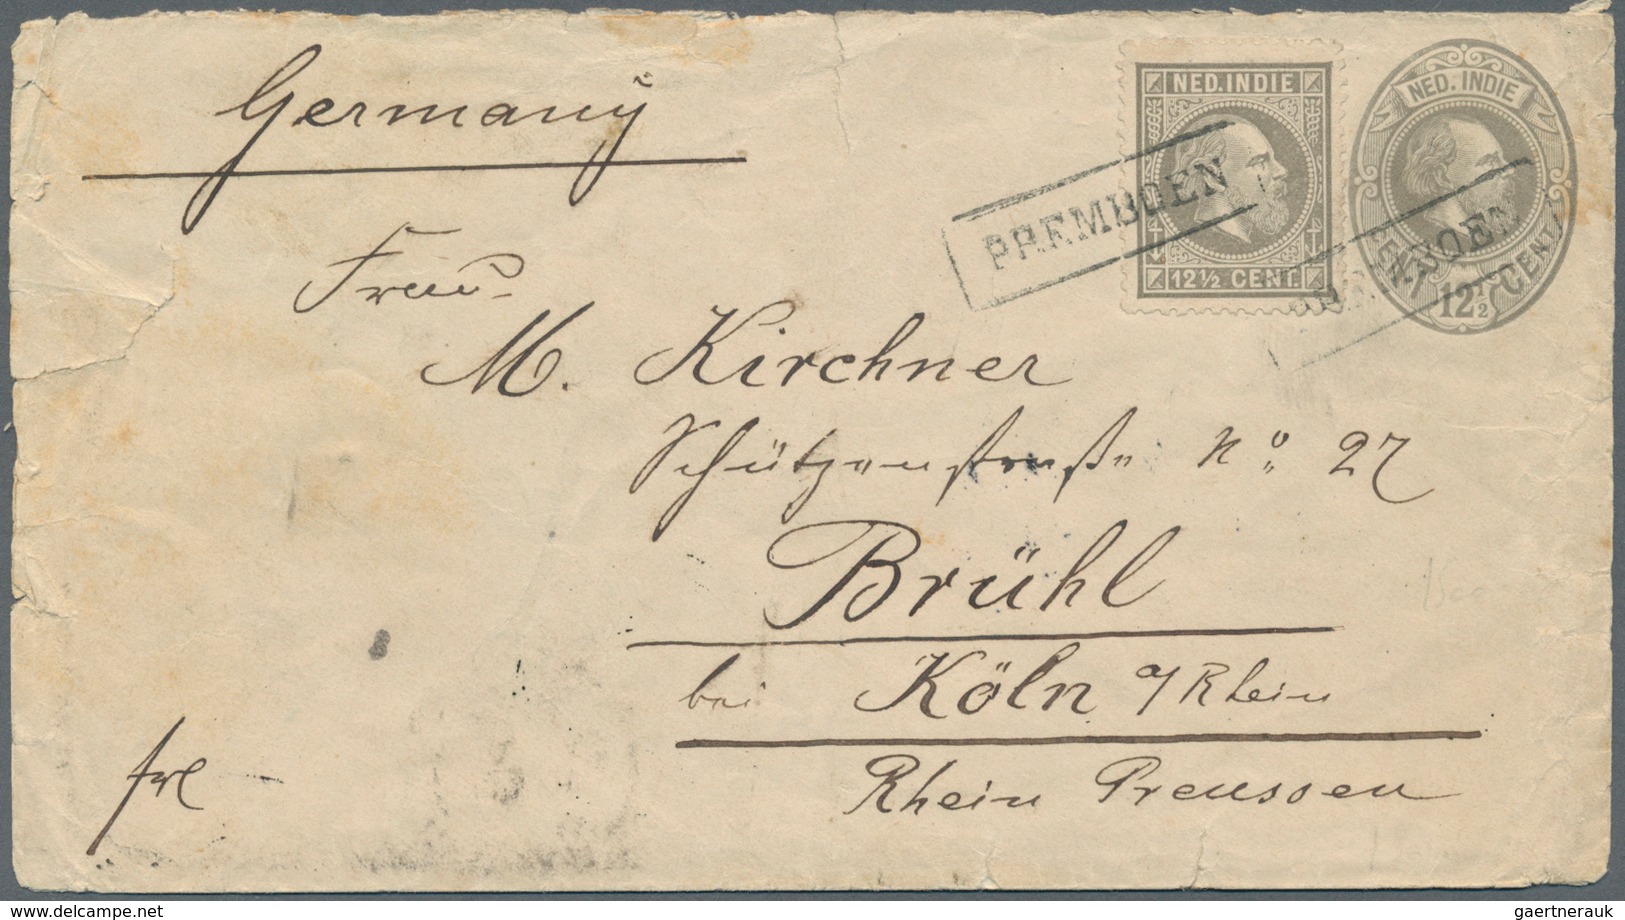 Germany
NED. INDIE
12½ CENT.
NED. INDIE
CENT. 12½ CENT.
PREMBOEN
Frau
M. Kirchner
Schützenstraße No. 27
Brühl
bei Köln a/Rhein
Rhein Preussen
delcampe.net
gaertnerauk